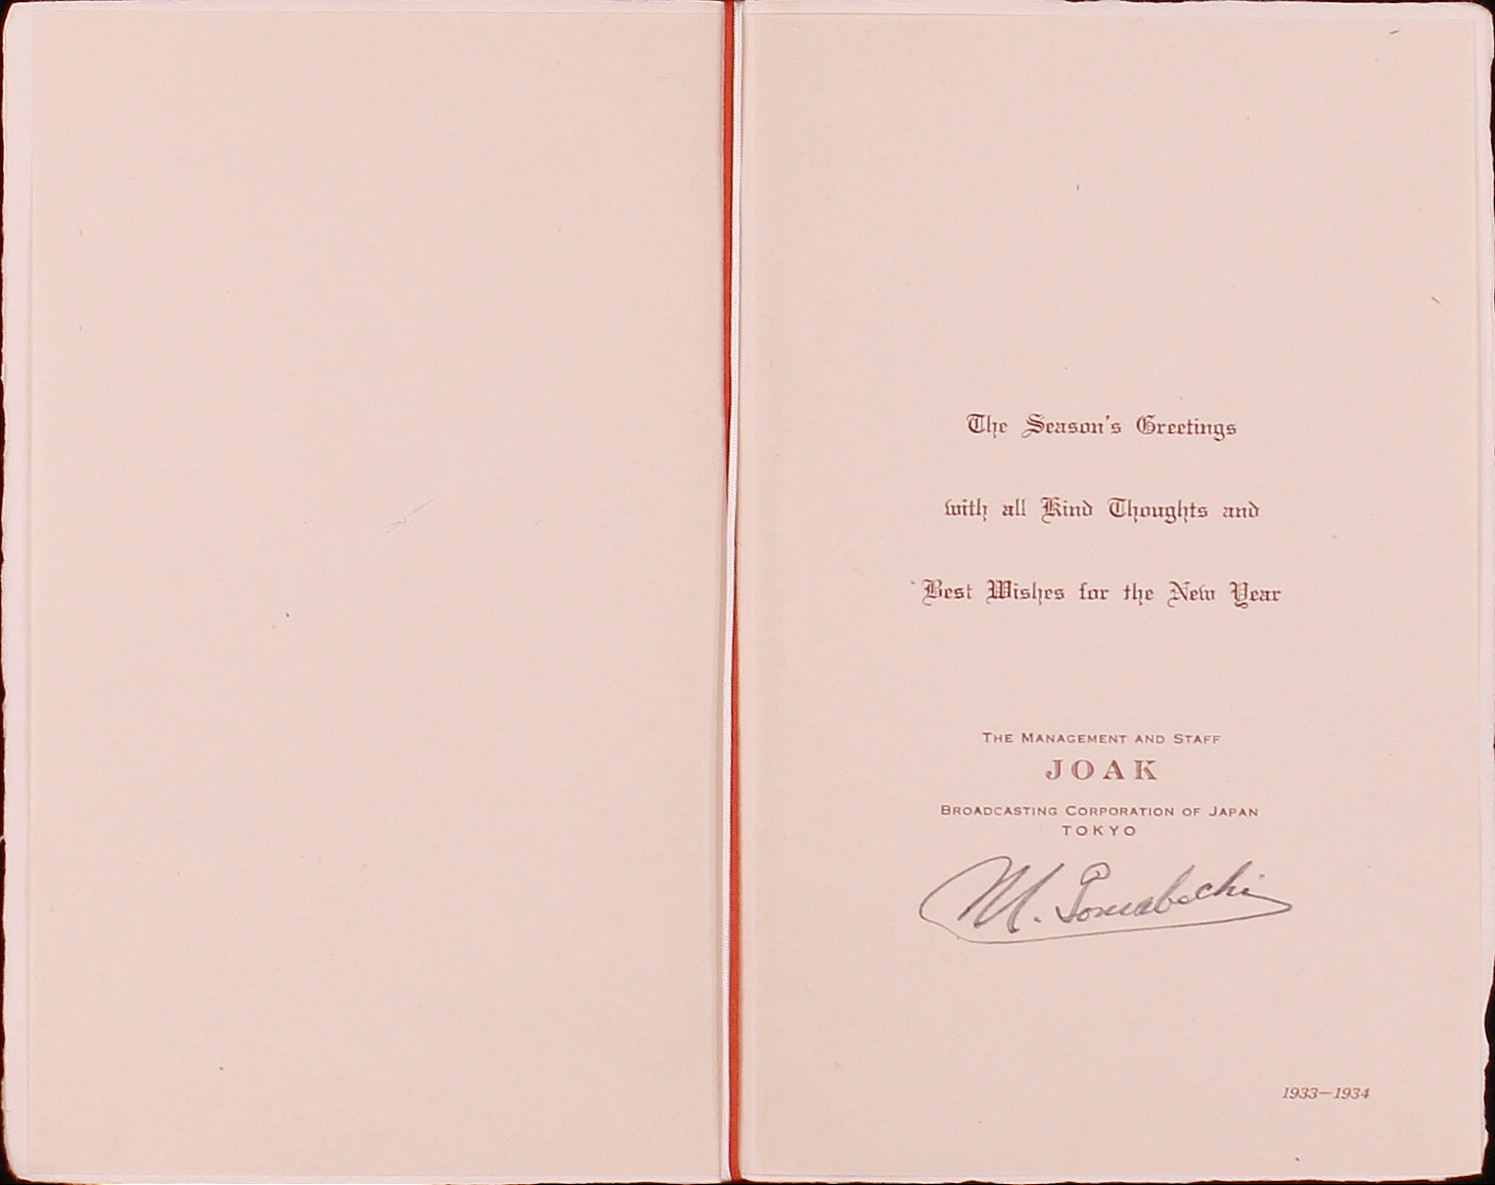 The Season's Greetings
with all Kind Thoughts and
Best Wishes for the New Year
THE MANAGEMENT AND STAFF
JOAK
BROADCASTING CORPORATION OF JAPAN
TOKYO
M. Tomabechi
1933—1934